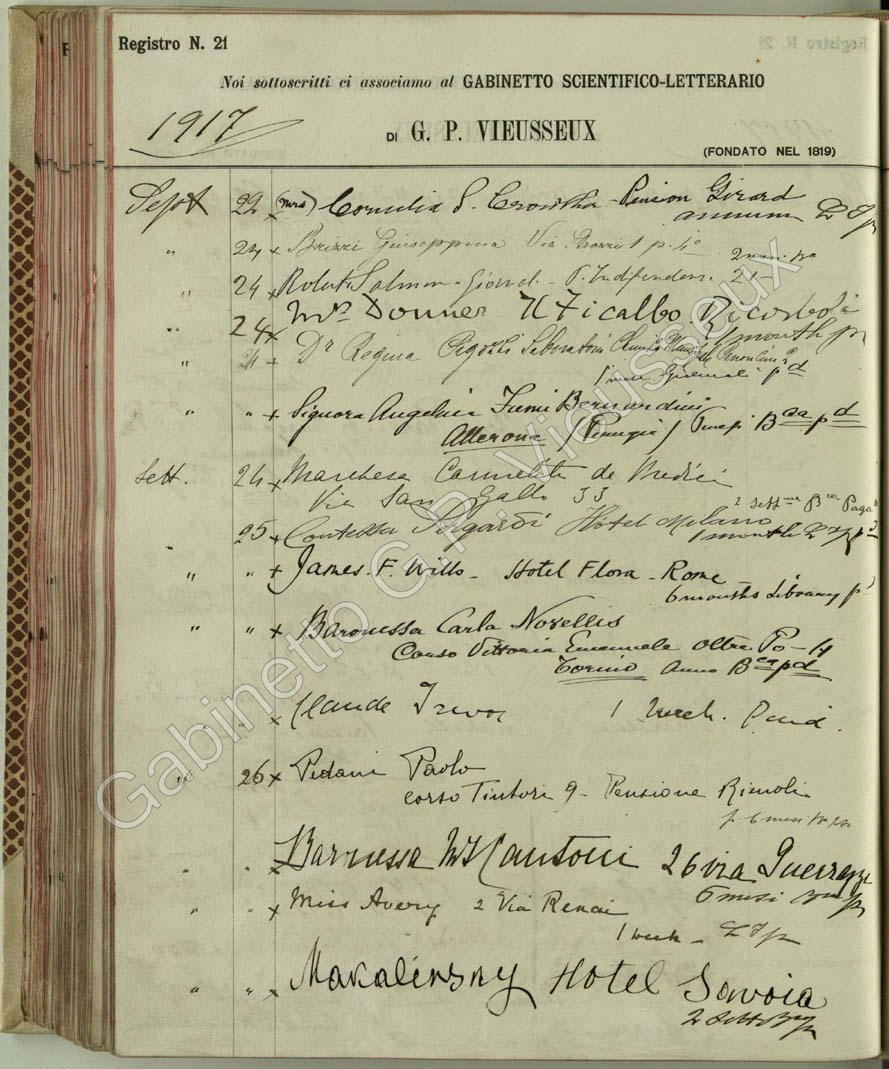 Registro N. 21
Noi sottoscritti ci associamo al GABINETTO SCIENTIFICO-LETTERARIO
1917
DI G. P. VIEUSSEUX
(FONDATO NEL 1819)
Sept 22 x (Mrs) Cornelia S. - Pension Girard
annum
" 24 x Brizzi Giuseppina Via 1 p. 1o
" 24 x Robert Salmon - Giornal. - P. Indipendenza. 21 -
" 24 x Mrs Donner Il Ficalbo Ricorboli
1 month p
" 24 x Dr Regina Laboratorio
1 mese Giornali pd
" " x Signora Angelica Fumi Bernardini
Allerona (Perugia) Bca pd
Sett. 24 x Marchesa de Medici
Via San Gallo 33
2 Sett
" 25 x Contessa Hôtel Milano
1 month
" " x James. F. Wills - Hotel Flora - Rome
6 months Library pd
" " x Baronessa Carla Novellis
Corso Vittoria Emanuele oltre Po - 4
Torino anno Bca pd
" " x Claude Trevor 1 Week. Paid.
" 26 x Pedani Paolo
Corso Tintori 9 - Pensione Rigoli
p. 6 mesi
" " x Baronessa Cantoni 26 via Guerrazzi
6 mesi
" " x Miss Avery 2 Via Renai
1 week -
" " x Makalinsky Hotel Savoia
2 Sett
Gabinetto G.P. Vieusseux